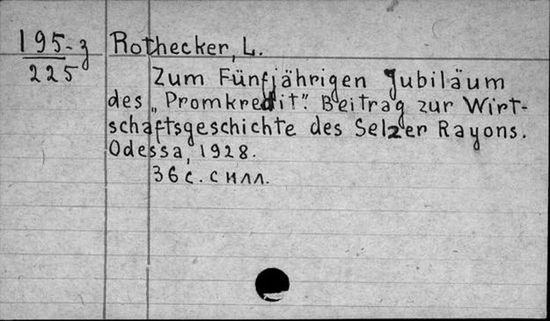 195-з
225
Rothecker, L.
Zum Fünfjährigen Jubiläum
des „Promkredit". Beitrag zur Wirt-
schaftsgeschichte des Selzer Rayons.
Odessa, 1928.
36 с. с илл.